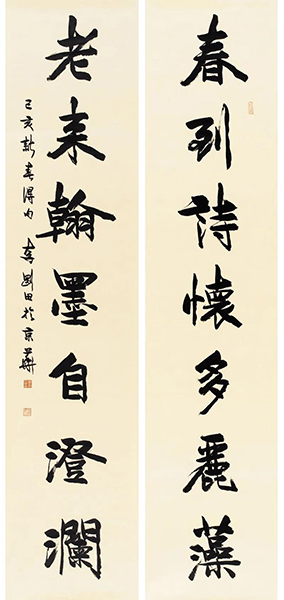 春到詩懷多麗藻
老來翰墨自澄瀾
己亥新春得句 李剛田於京華